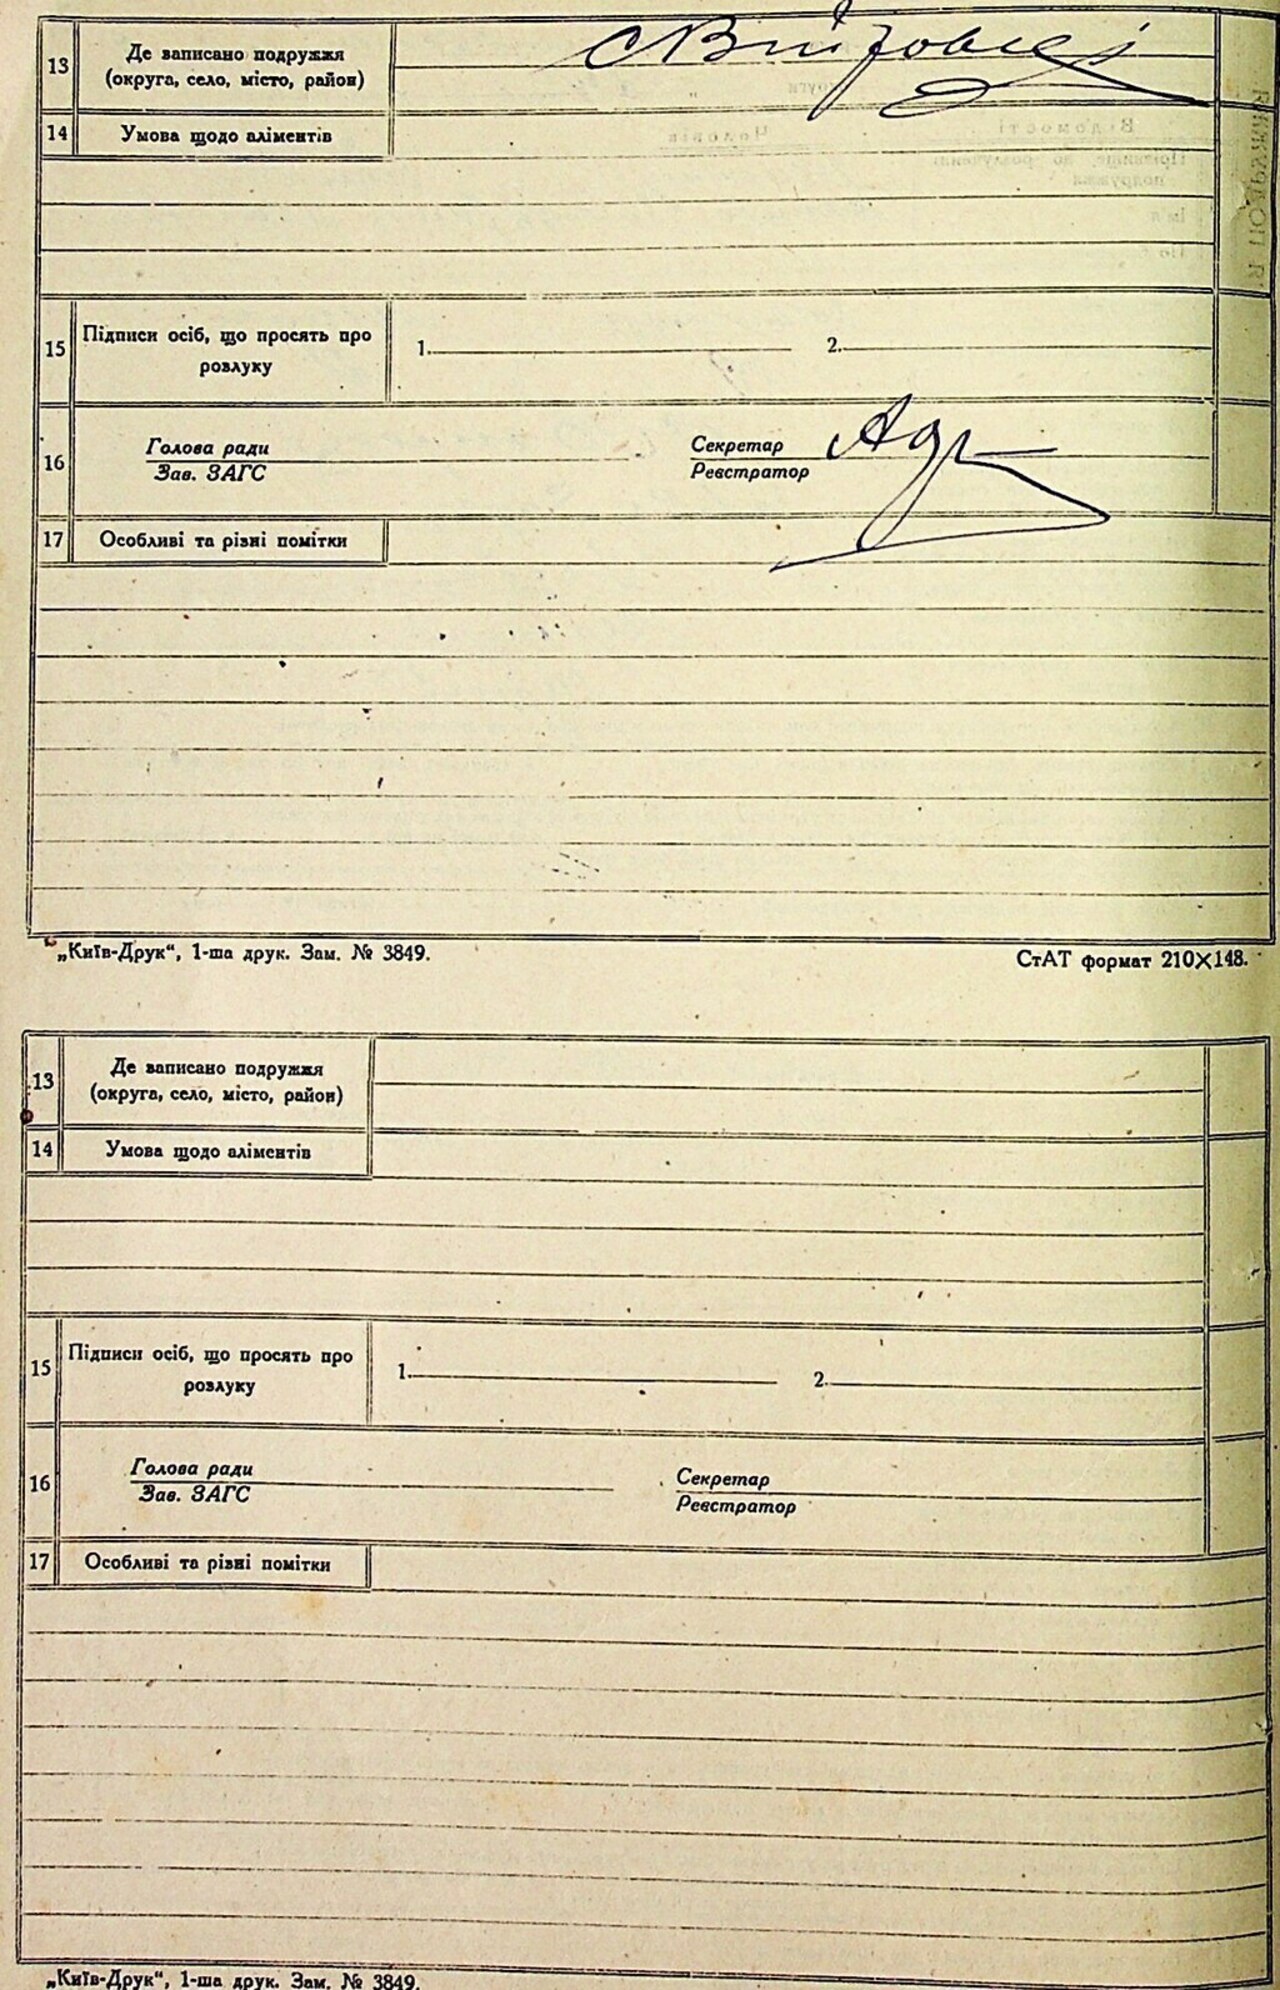 13 Де записано подружжя
(округа, село, місто, район)
14 Умова щодо аліментів
15 Підписи осіб, що просять про
розлуку
1. 2.
16 Голова ради Секретар
Зав. ЗАГС Реєстратор
17 Особливі та різні помітки
„Київ-Друк“, 1-ша друк. Зам. № 3849. СтАТ формат 210×148.
13 Де записано подружжя
(округа, село, місто, район)
14 Умова щодо аліментів
15 Підписи осіб, що просять про
розлуку
1. 2.
16 Голова ради Секретар
Зав. ЗАГС Реєстратор
17 Особливі та різні помітки
„Київ-Друк“, 1-ша друк. Зам. № 3849.